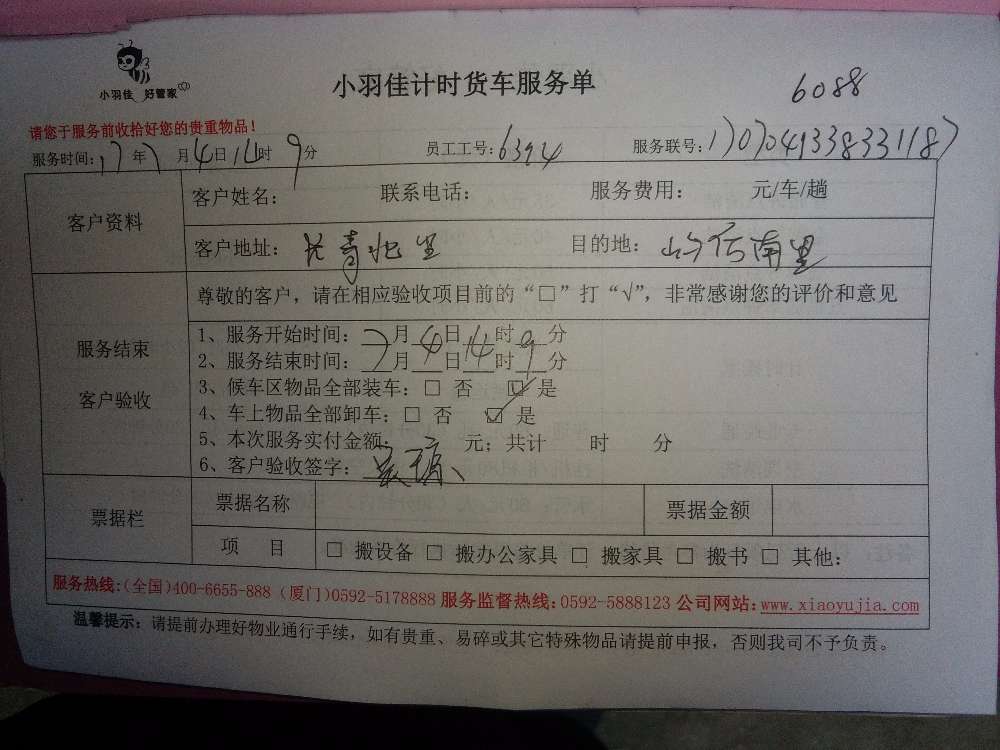 小羽佳 好管家
小羽佳计时货车服务单
6088
请您于服务前收拾好您的贵重物品!
服务时间: 17年7月4日14时9分 员工工号: 6394 服务联号: 1707041338331187
客户资料
客户姓名: 联系电话: 服务费用: 元/车/趟
客户地址: 长青北里 目的地: 岭兜南里
服务结束
客户验收
尊敬的客户，请在相应验收项目前的“□”打“√”，非常感谢您的评价和意见
1、服务开始时间: 7月4日14时9分
2、服务结束时间: 7月4日14时9分
3、候车区物品全部装车: □ 否 ☑ 是
4、车上物品全部卸车: □ 否 ☑ 是
5、本次服务实付金额: 元; 共计 时 分
6、客户验收签字:
票据栏
票据名称 票据金额
项 目 □ 搬设备 □ 搬办公家具 □ 搬家具 □ 搬书 □ 其他:
服务热线:(全国)400-6655-888 (厦门)0592-5178888 服务监督热线:0592-5888123 公司网站:www.xiaoyujia.com
温馨提示: 请提前办理好物业通行手续，如有贵重、易碎或其它特殊物品请提前申报，否则我司不予负责。